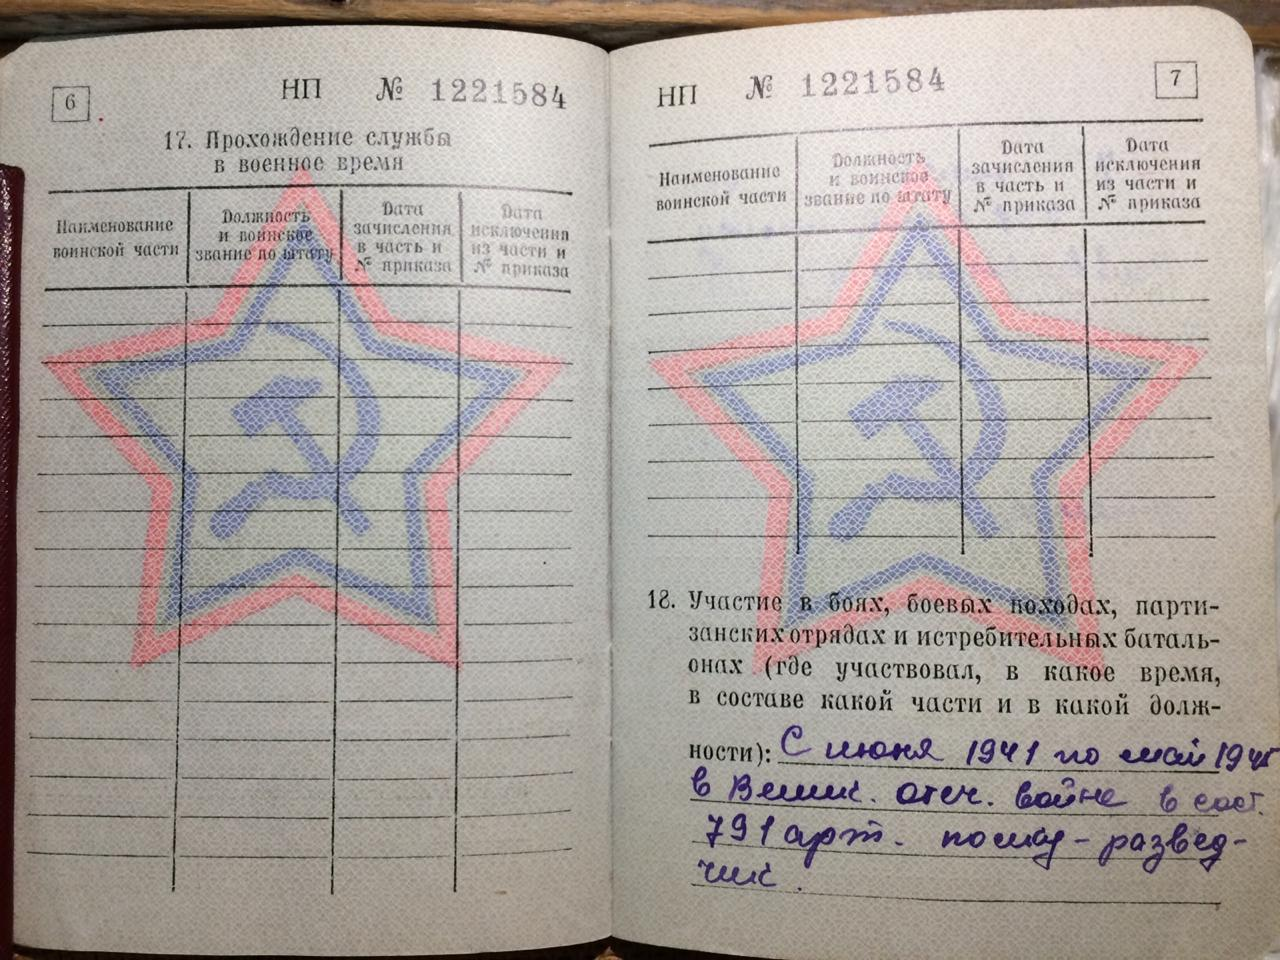 6
НП № 1221584
17. Прохождение службы
в военное время
Наименование
воинской части
Должность
и воинское
звание по штату
Дата
зачисления
в часть и
№ приказа
Дата
исключения
из части и
№ приказа
НП № 1221584
7
Наименование
воинской части
Должность
и воинское
звание по штату
Дата
зачисления
в часть и
№ приказа
Дата
исключения
из части и
№ приказа
18. Участие в боях, боевых походах, парти-
занских отрядах и истребительных баталь-
онах (где участвовал, в какое время,
в составе какой части и в какой долж-
ности): С июня 1941 по май 1945
в Велик. отеч. войне в сост.
791 арт. полку - развед-
чик.